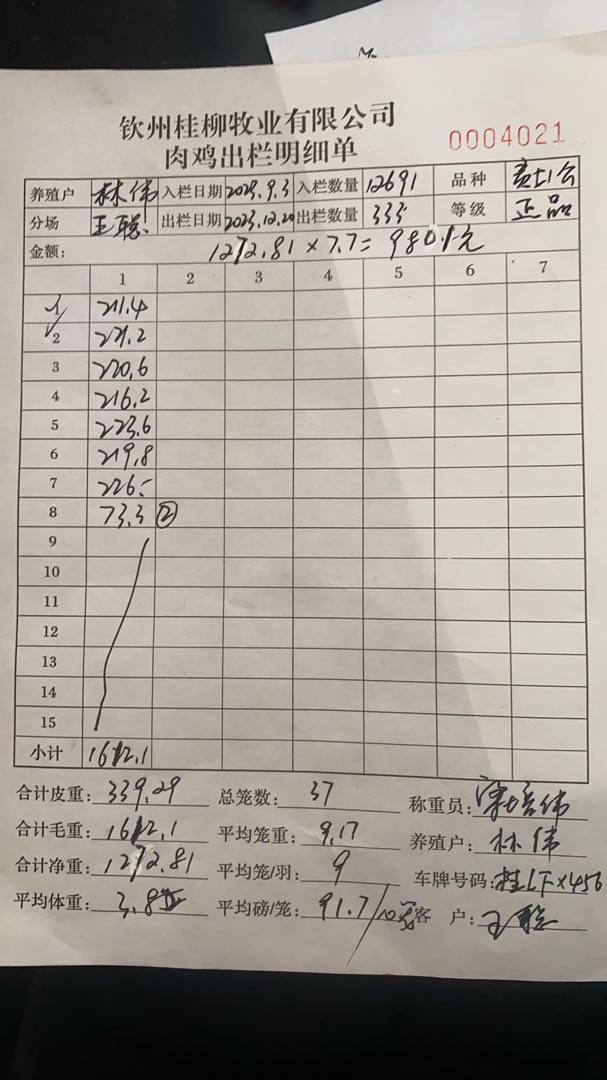 钦州桂柳牧业有限公司
肉鸡出栏明细单
0004021
养殖户 林伟 入栏日期 2023.9.3 入栏数量 12691 品种
分场 王聪 出栏日期 2023.12.20 出栏数量 333 等级 正品
金额: 1272.81×7.7=9801元
1 2 3 4 5 6 7
1 211.4
2 221.2
3 220.6
4 216.2
5 223.6
6 219.8
7 226.
8 73.3 ②
9
10
11
12
13
14
15
小计 1612.1
合计皮重: 339.29 总笼数: 37 称重员:
合计毛重: 1612.1 平均笼重: 9.17 养殖户: 林伟
合计净重: 1272.81 平均笼/羽: 9 车牌号码: 桂LFX456
平均体重: 3.8 平均磅/笼: 91.7/10 客户: 王聪